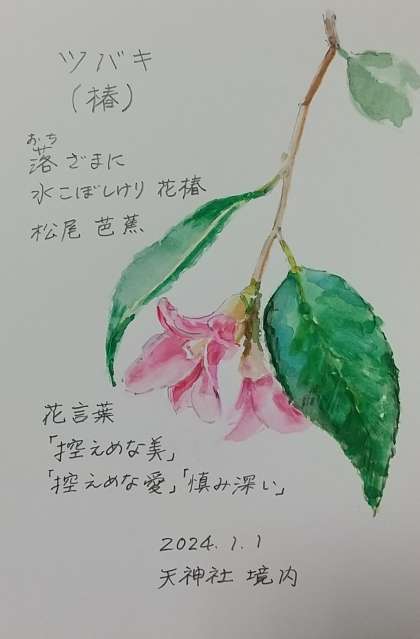 ツバキ
(椿)
おち
落ざまに
水こぼしけり 花椿
松尾 芭蕉
花言葉
「控えめな美」
「控えめな愛」「慎み深い」
2024.1.1
天神社 境内